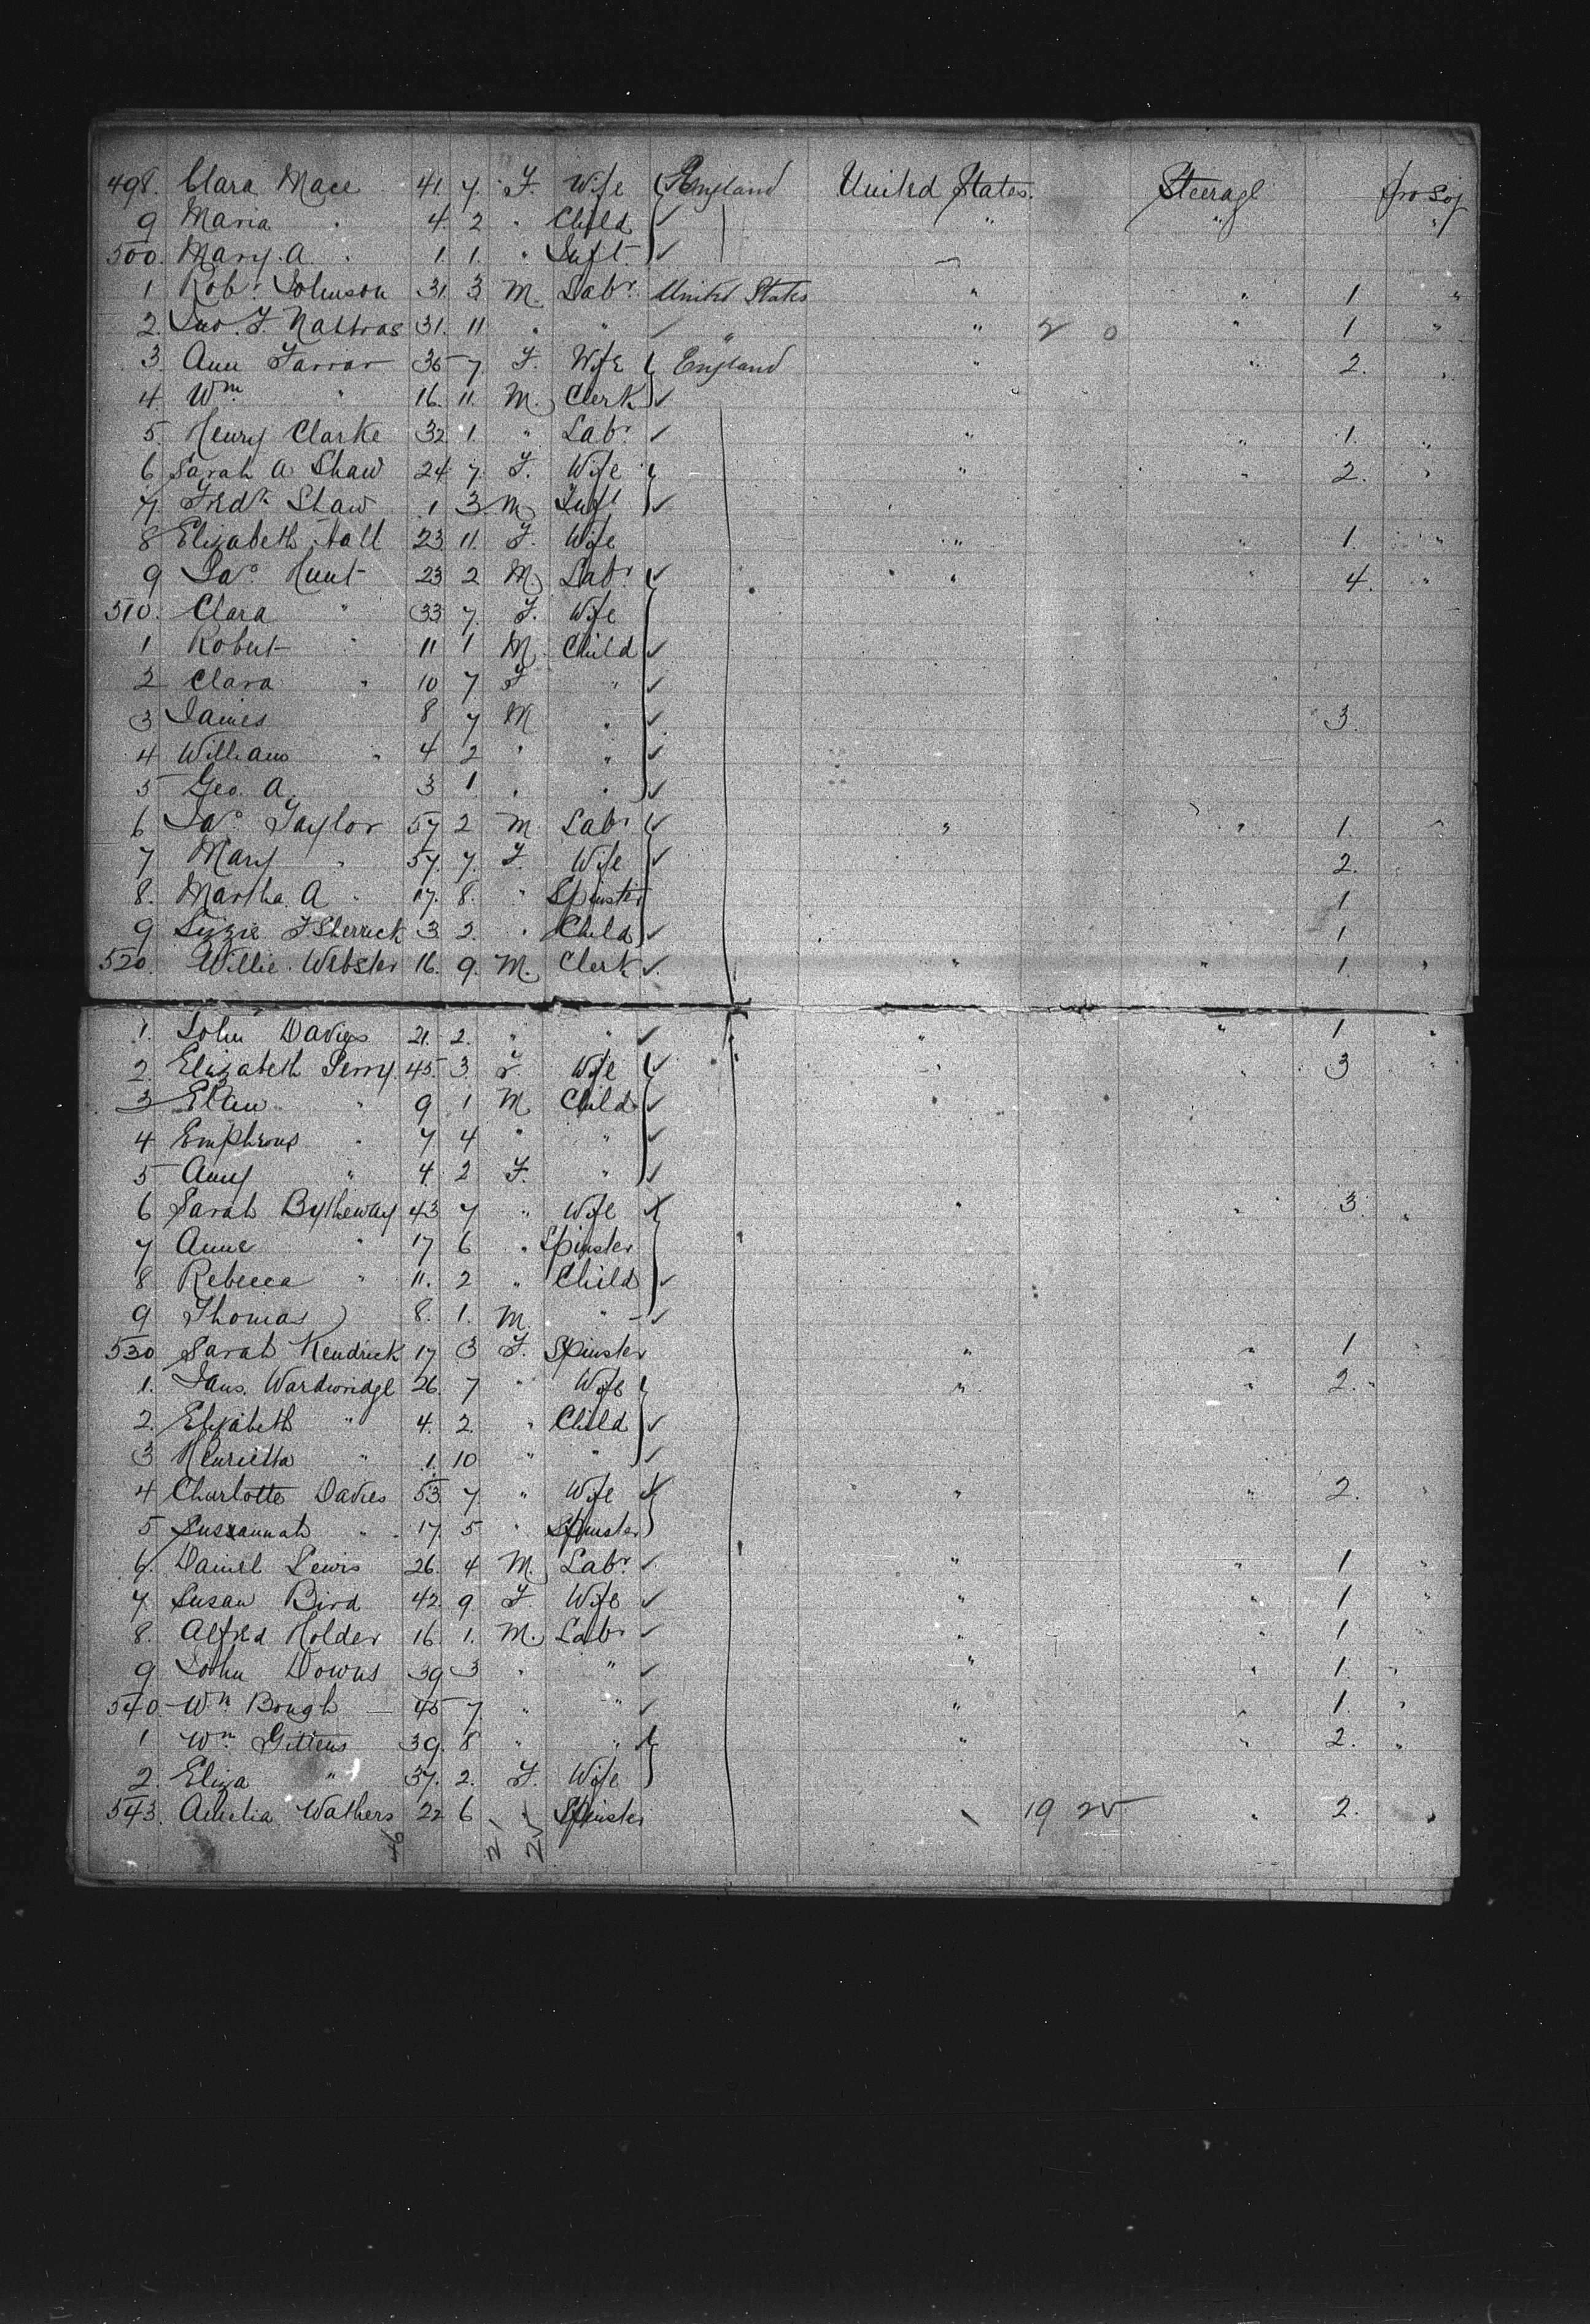 498. Clara Mace 41 7. F. Wife England United States. Steerage pro Soj
9 Maria " 4. 2 " Child " " "
500. Mary. A. " 1 1. " Inft.
1 Robt. Johnson 31. 3 M. Labr. United States " " 1 "
2. Jno. F. 31. 11 " " " " 2 0 " 1 "
3. Ann Farrar 36 7. F. Wife England " " 2. "
4. Wm. " 16. 11. M. Clerk
5. Henry Clarke 32 1. " Labr. " " 1. "
6 Sarah A Shaw 24. 7. F. Wife " " 2. "
7. Fredk. Shaw 1 3 M. Inft
8 Elizabeth Hall 23 11. F. Wife " " 1. "
9 Jas. Hunt 23 2 M. Labr. " " 4. "
510. Clara " 33 7. F. Wife
1 Robert " 11 1 M. Child
2 Clara " 10 7 F "
3 James 8 7 M " 3.
4 William " 4 2 " "
5 Geo. A. 3 1. " "
6 Jas. Taylor 57 2 M. Labr " " 1. "
7 Mary " 57. 7. F. Wife 2.
8. Martha. A " 17. 8. " Spinster 1
9 Lizzie 3 2. " Child 1
520. Willie. Webster 16. 9. M. Clerk " " 1. "
1. John Davies 21. 2. " " " " 1 "
2. Elizabeth Perry. 45. 3. F. Wife " " 3 "
3 " 9 1 M Child
4 " 7 4 " "
5 Amy " 4. 2 F. "
6 Sarah Bytheway 43 7 " Wife " " 3. "
7 Anne " 17 6 " Spinster
8 Rebecca " 11. 2 " Child
9 Thomas 8. 1. M. "
530 Sarah Kendrick 17 3 F. Spinster " " 1 "
1. Wardwridge 26. 7 " Wife " " 2. "
2. Elizabeth " 4. 2. " Child
3 Henrietta " 1. 10 " "
4 Charlotte Davies 53. 7. " Wife " " 2. "
5 Susannah " 17. 5 " Spinster
6. Daniel Lewis 26. 4 M. Labr. " " 1 "
7. Susan Bird 42. 9 F. Wife " " 1 "
8. Alfred Holder 16. 1. M. Labr " " 1 "
9 John Downs 39 3 " " " " 1. "
540. Wm Bough 45 7 " " " " 1. "
1 Wm. Gittens 39. 8 " " " " 2. "
2. Eliza " 37. 2. F. Wife
543. Amelia Wathers 22 6 " Spinster 19 25 " 2. "
21 25